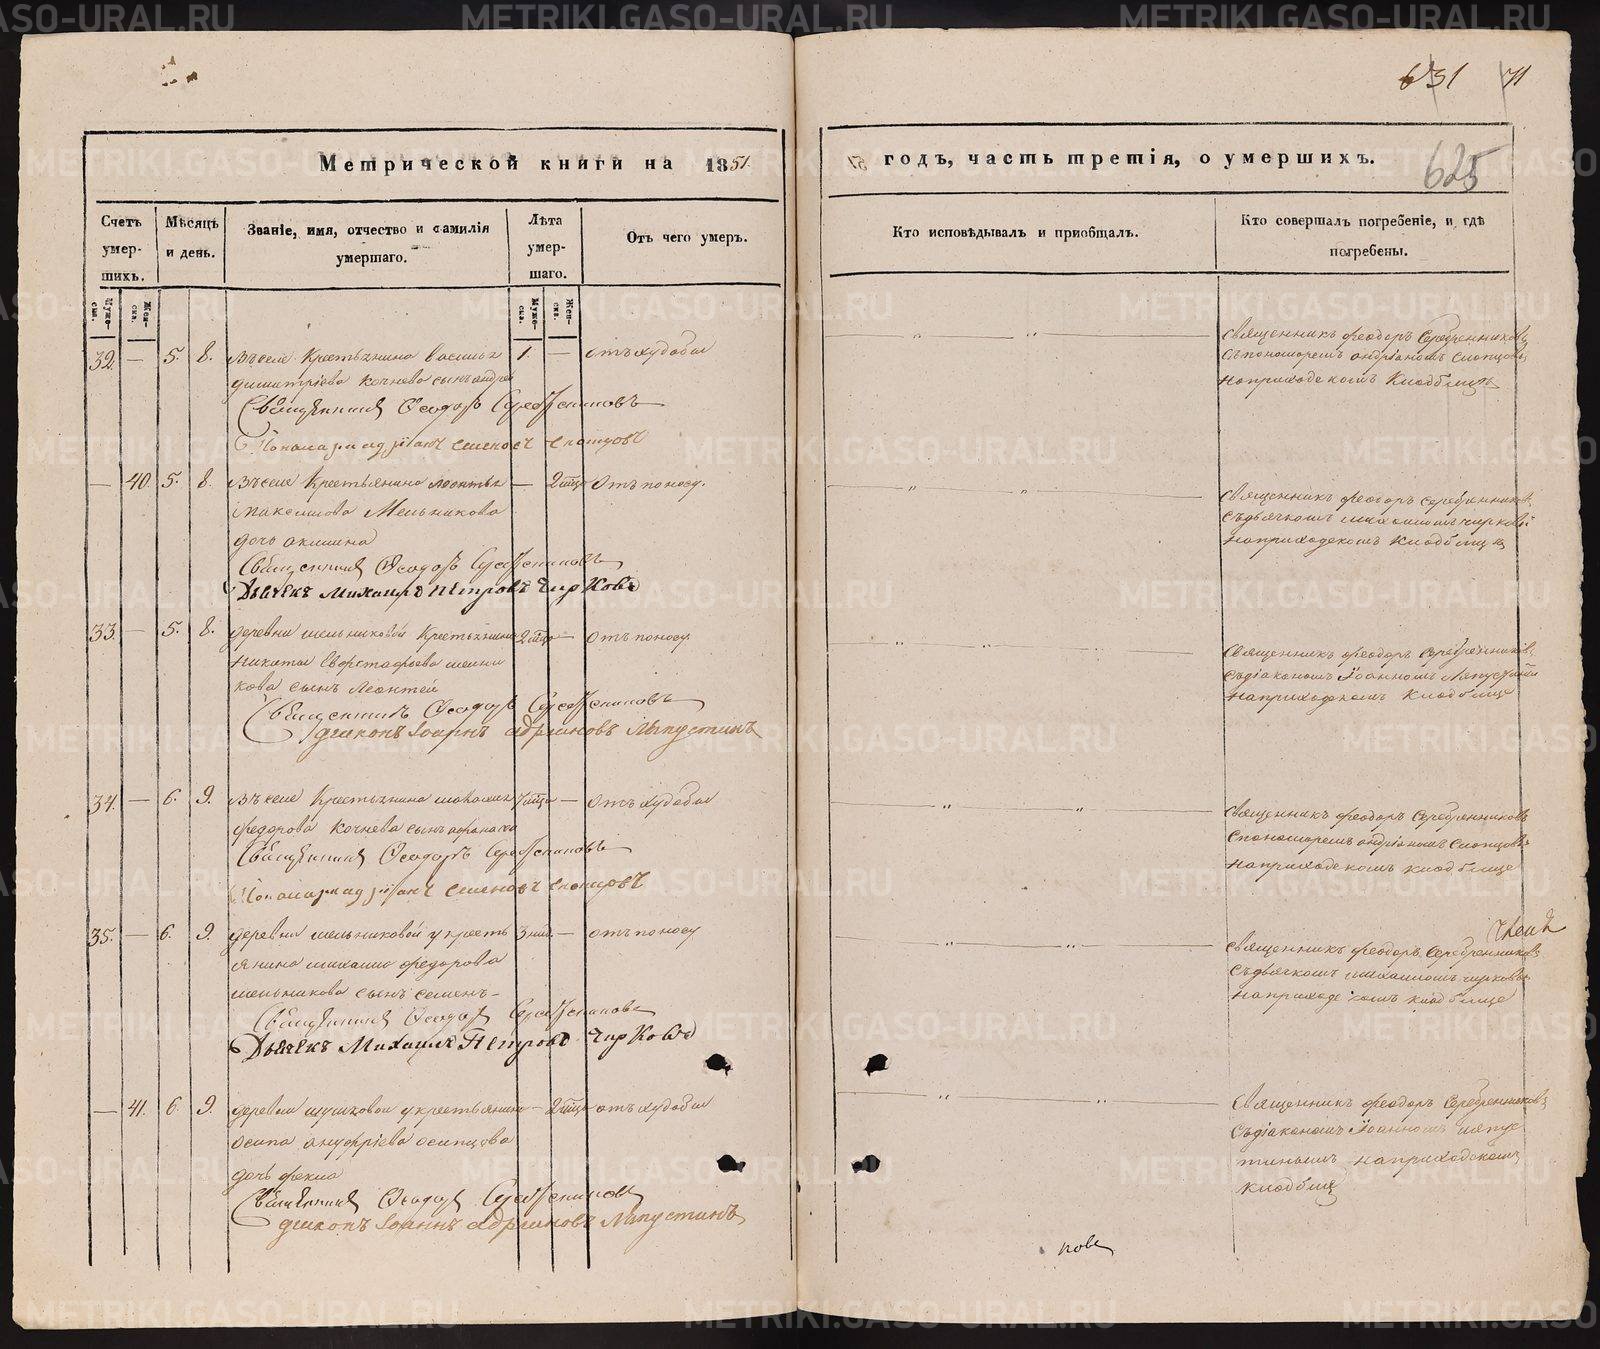 631 71
625
Метрической книги на 1851.
годъ, часть третія, о умершихъ.
Счетъ умер- шихъ.
Мѣсяцъ и день.
Званіе, имя, отчество и фамилія умершаго.
Лѣта умер- шаго.
Отъ чего умеръ.
Кто исповѣдывалъ и приобщалъ.
Кто совершалъ погребеніе, и гдѣ погребены.
Муже- ска.
Жен- ска.
Муже- ска.
Жен- ска.
32. — 5. 8. Въ селѣ Крестьянина Василья 1. — отъ худобы
димитріева Кочнева сынъ андрей
Священникъ Ѳеодоръ Серебренниковъ
Пономарь адріанъ семеновъ слопцовъ
Священникъ Феодоръ Серебренниковъ
съ пономаремъ андріаномъ Слопцовы
на приходскомъ Кладбищѣ
— 40. 5. 8. Въ селѣ Крестьянина леонтья — 2 мѣц. Отъ поносу.
максимова Мельникова
дочь акилина
Священникъ Ѳеодоръ Серебренниковъ
Дьячекъ Михаилъ Петровъ Чирковъ
Священникъ Феодоръ Серебренниковъ
съ дьячкомъ михаиломъ чирковы
на приходскомъ Кладбищѣ
33. — 5. 8. деревни мельниковой Крестьянина 2 мѣц. — отъ поносу.
никиты Евстафьева мельни
кова сынъ Леонтей
Священникъ Ѳеодоръ Серебренниковъ
діаконъ Іоаннъ адріановъ Ляпустинъ
Священникъ Феодоръ Серебренниковъ
съ діакономъ Іоанномъ Ляпустины
на приходскомъ Кладбище
34. — 6. 9. Въ селѣ Крестьянина 7 мѣц. — отъ худобы
федорова Кочнева сынъ
Священникъ Ѳеодоръ Серебренниковъ
Пономарь адріанъ семеновъ слопцовъ
Священникъ феодоръ Серебренниковъ
с пономаремъ андріаномъ Слопцовы
на приходскомъ кладбище
35. — 6. 9. деревни мельниковой у кресть 3 нед. — отъ поносу
янина михаила федорова
мельникова сынъ семенъ —
Священникъ Ѳеодоръ Серебренниковъ
Дьячекъ Михаилъ Петровъ Чирковъ
Священникъ феодоръ Серебренниковъ
съ дьячкомъ михаиломъ чирковы
на приходскомъ кладбище
— 41. 6. 9. деревни шушковой у крестьянина — 2 мѣц. отъ худобы
осипа ануфріева осипцова
дочь фекла
Священникъ Ѳеодоръ Серебренниковъ
діаконъ Іоаннъ адріановъ Ляпустинъ
Священникъ феодоръ Серебренниковъ
съ діакономъ Іоанномъ ляпус
тинымъ на приходскомъ
кладбищѣ
METRIKI.GASO-URAL.RU